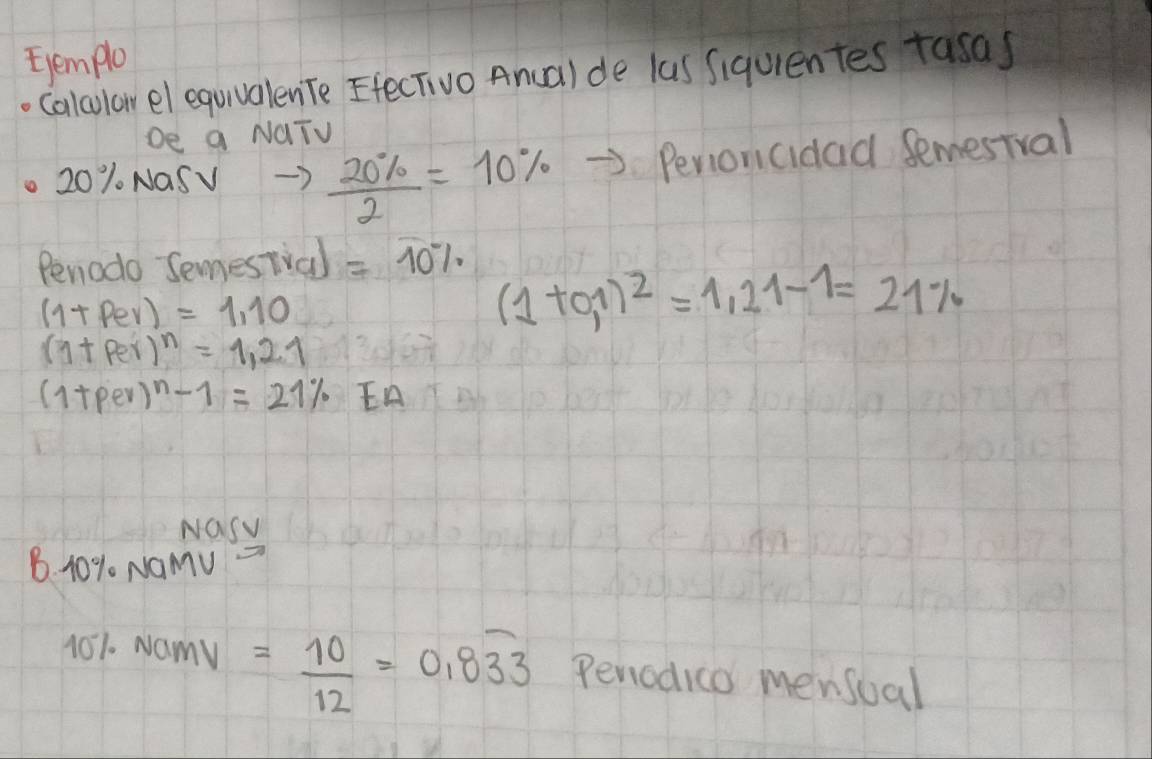 Ejemplo
• Calcular el equivalente Efectivo Anual de las siguientes tasas
De a NaTV
• 20% NaSV → 20%/2 = 10% → Perioricidad Semestral
Periodo Semestral = 10%
(1+Per) = 1,10
(1+0,1)² = 1,21-1= 21%
(1+Per)ⁿ = 1,21
(1+per)ⁿ-1 = 21% EA
NaSV
B. 10% NaMV =
10% NamV = 10/12 = 0,833 Periodico mensual